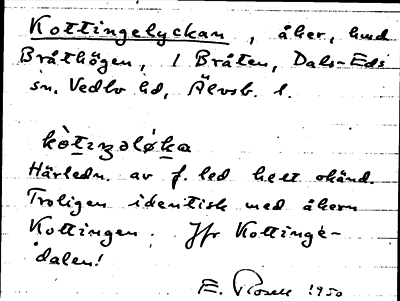 Kottingelyckan, åker, hmd
Bråthögen, 1 Bråten, Dals-Eds
sn. Vedbo hd, Älvsb. l.
kòtiŋəløka
Härledn. av f. led helt okänd.
Troligen identisk med åkern
Kottingen. Jfr Kottinge-
dalen!
E. Rosell 1950